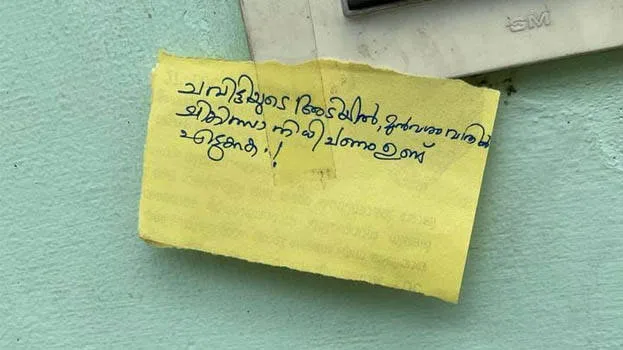 SM
ചവിട്ടിയുടെ അടിയിൽ, മുൻവശം വാതിൽ
ചികിത്സാ നിധി പണം ഉണ്ട്
എടുക്കുക..!